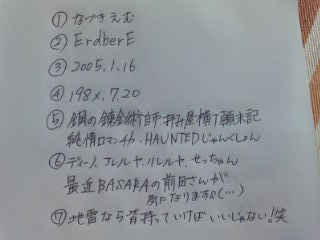 ① なつきえむ
② ErdberE
③ 2005.1.16
④ 198x.7.20
⑤ 鋼の錬金術師 拝み屋横丁顛末記
純情ロマンチカ・HAUNTEDじゃんくしょん
⑥ ディーノ、フレルレヤ、ハレルヤ、せっちゃん
最近BASARAの前田さんが
気になりますs(…)
⑰ 地雷なら皆持っていけばいいじゃない!笑